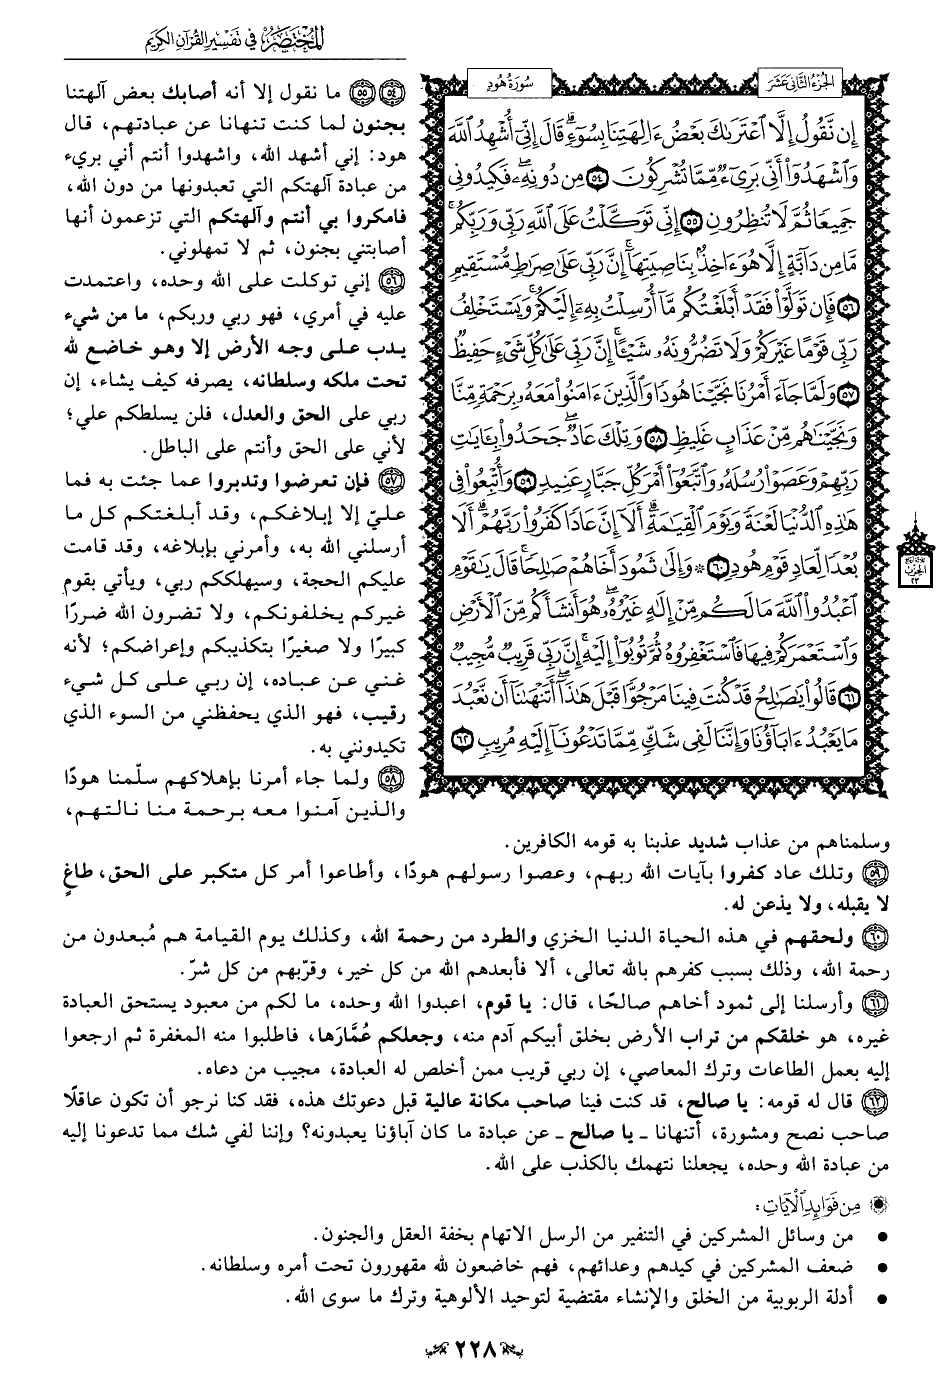 المختصر في تفسير القرآن الكريم
الجزء الثاني عشر
سورة هود
إِن نَّقُولُ إِلَّا ٱعْتَرَىٰكَ بَعْضُ ءَالِهَتِنَا بِسُوٓءٍۗ قَالَ إِنِّيٓ أُشْهِدُ ٱللَّهَ
وَٱشْهَدُوٓاْ أَنِّي بَرِيٓءٞ مِّمَّا تُشْرِكُونَ ٥٤ مِن دُونِهِۦۖ فَكِيدُونِي
جَمِيعٗا ثُمَّ لَا تُنظِرُونِ ٥٥ إِنِّي تَوَكَّلْتُ عَلَى ٱللَّهِ رَبِّي وَرَبِّكُمۚ
مَّا مِن دَآبَّةٍ إِلَّا هُوَ ءَاخِذُۢ بِنَاصِيَتِهَآۚ إِنَّ رَبِّي عَلَىٰ صِرَٰطٖ مُّسْتَقِيمٖ
٥٦ فَإِن تَوَلَّوْاْ فَقَدْ أَبْلَغْتُكُم مَّآ أُرْسِلْتُ بِهِۦٓ إِلَيْكُمْۚ وَيَسْتَخْلِفُ
رَبِّي قَوْمًا غَيْرَكُمْ وَلَا تَضُرُّونَهُۥ شَيْـًٔاۚ إِنَّ رَبِّي عَلَىٰ كُلِّ شَيْءٍ حَفِيظٞ
٥٧ وَلَمَّا جَآءَ أَمْرُنَا نَجَّيْنَا هُودٗا وَٱلَّذِينَ ءَامَنُواْ مَعَهُۥ بِرَحْمَةٖ مِّنَّا
وَنَجَّيْنَٰهُم مِّنْ عَذَابٍ غَلِيظٖ ٥٨ وَتِلْكَ عَادٞۖ جَحَدُواْ بِـَٔايَٰتِ
رَبِّهِمْ وَعَصَوْاْ رُسُلَهُۥ وَٱتَّبَعُوٓاْ أَمْرَ كُلِّ جَبَّارٍ عَنِيدٖ ٥٩ وَأُتْبِعُواْ فِي
هَٰذِهِ ٱلدُّنْيَا لَعْنَةٗ وَيَوْمَ ٱلْقِيَٰمَةِۗ أَلَآ إِنَّ عَادٗا كَفَرُواْ رَبَّهُمْۗ أَلَا
بُعْدٗا لِّعَادٖ قَوْمِ هُودٖ ٦٠ ۞ وَإِلَىٰ ثَمُودَ أَخَاهُمْ صَٰلِحٗاۚ قَالَ يَٰقَوْمِ
ٱعْبُدُواْ ٱللَّهَ مَا لَكُم مِّنْ إِلَٰهٍ غَيْرُهُۥۖ هُوَ أَنشَأَكُم مِّنَ ٱلْأَرْضِ
وَٱسْتَعْمَرَكُمْ فِيهَا فَٱسْتَغْفِرُوهُ ثُمَّ تُوبُوٓاْ إِلَيْهِۚ إِنَّ رَبِّي قَرِيبٞ مُّجِيبٞ
٦١ قَالُواْ يَٰصَٰلِحُ قَدْ كُنتَ فِينَا مَرْجُوّٗا قَبْلَ هَٰذَآۖ أَتَنْهَىٰنَآ أَن نَّعْبُدَ
مَا يَعْبُدُ ءَابَآؤُنَا وَإِنَّنَا لَفِي شَكّٖ مِّمَّا تَدْعُونَآ إِلَيْهِ مُرِيبٖ ٦٢
الحزب
٢٣
٥٤ ٥٥ ما نقول إلا أنه أصابك بعض آلهتنا
بجنون لما كنت تنهانا عن عبادتهم، قال
هود: إني أشهد الله، واشهدوا أنتم أني بريء
من عبادة آلهتكم التي تعبدونها من دون الله،
فامكروا بي أنتم وآلهتكم التي تزعمون أنها
أصابتني بجنون، ثم لا تمهلوني.
٥٦ إني توكلت على الله وحده، واعتمدت
عليه في أمري، فهو ربي وربكم، ما من شيء
يدب على وجه الأرض إلا وهو خاضع لله
تحت ملكه وسلطانه، يصرفه كيف يشاء، إن
ربي على الحق والعدل، فلن يسلطكم علي؛
لأني على الحق وأنتم على الباطل.
٥٧ فإن تعرضوا وتدبروا عما جئت به فما
عليّ إلا إبلاغكم، وقد أبلغتكم كل ما
أرسلني الله به، وأمرني بإبلاغه، وقد قامت
عليكم الحجة، وسيهلككم ربي، ويأتي بقوم
غيركم يخلفونكم، ولا تضرون الله ضررًا
كبيرًا ولا صغيرًا بتكذيبكم وإعراضكم؛ لأنه
غني عن عباده، إن ربي على كل شيء
رقيب، فهو الذي يحفظني من السوء الذي
تكيدونني به.
٥٨ ولما جاء أمرنا بإهلاكهم سلّمنا هودًا
والذين آمنوا معه برحمة منا نالتهم،
وسلمناهم من عذاب شديد عذبنا به قومه الكافرين.
٥٩ وتلك عاد كفروا بآيات الله ربهم، وعصوا رسولهم هودًا، وأطاعوا أمر كل متكبر على الحق، طاغٍ
لا يقبله، ولا يذعن له.
٦٠ ولحقهم في هذه الحياة الدنيا الخزي والطرد من رحمة الله، وكذلك يوم القيامة هم مُبعدون من
رحمة الله، وذلك بسبب كفرهم بالله تعالى، ألا فأبعدهم الله من كل خير، وقرّبهم من كل شرّ.
٦١ وأرسلنا إلى ثمود أخاهم صالحًا، قال: يا قوم، اعبدوا الله وحده، ما لكم من معبود يستحق العبادة
غيره، هو خلقكم من تراب الأرض بخلق أبيكم آدم منه، وجعلكم عُمَّارَها، فاطلبوا منه المغفرة ثم ارجعوا
إليه بعمل الطاعات وترك المعاصي، إن ربي قريب ممن أخلص له العبادة، مجيب من دعاه.
٦٢ قال له قومه: يا صالح، قد كنت فينا صاحب مكانة عالية قبل دعوتك هذه، فقد كنا نرجو أن تكون عاقلًا
صاحب نصح ومشورة، أتنهانا ـ يا صالح ـ عن عبادة ما كان آباؤنا يعبدونه؟ وإننا لفي شك مما تدعونا إليه
من عبادة الله وحده، يجعلنا نتهمك بالكذب على الله.
من فوائد الآيات:
• من وسائل المشركين في التنفير من الرسل الاتهام بخفة العقل والجنون.
• ضعف المشركين في كيدهم وعدائهم، فهم خاضعون لله مقهورون تحت أمره وسلطانه.
• أدلة الربوبية من الخلق والإنشاء مقتضية لتوحيد الألوهية وترك ما سوى الله.
٢٢٨